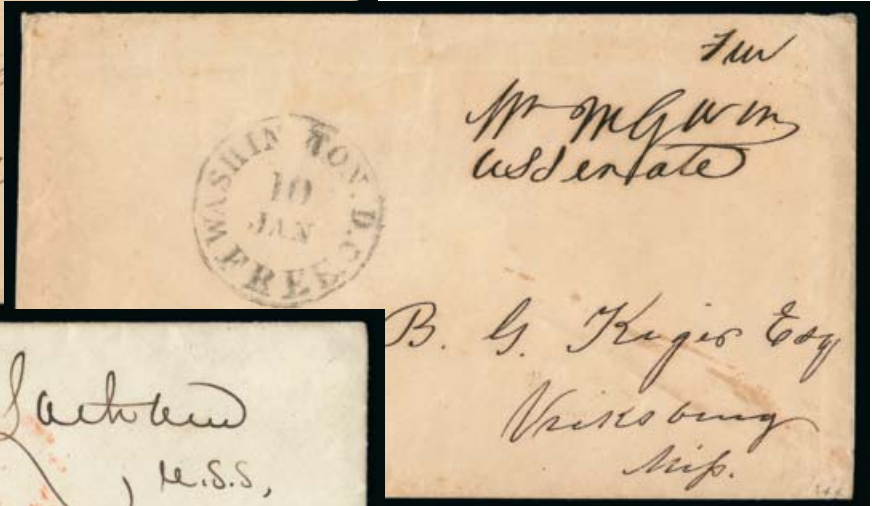 Free
Wm M Gwin
US Senate
WASHINGTON. D.C.
10
JAN
FREE
B. G. Kiger Esq
Vicksburg
Miss.
U.S.S,